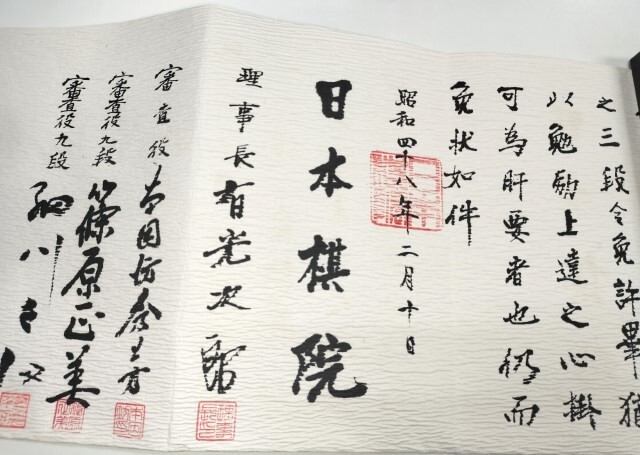 之三段令免許畢猶
以勉励上達之心掛
可為肝要者也仍而
免状如件
昭和四十八年二月十日
日本棋院
理事長 有光次郎
審査役
審査役九段 篠原正美
審査役九段